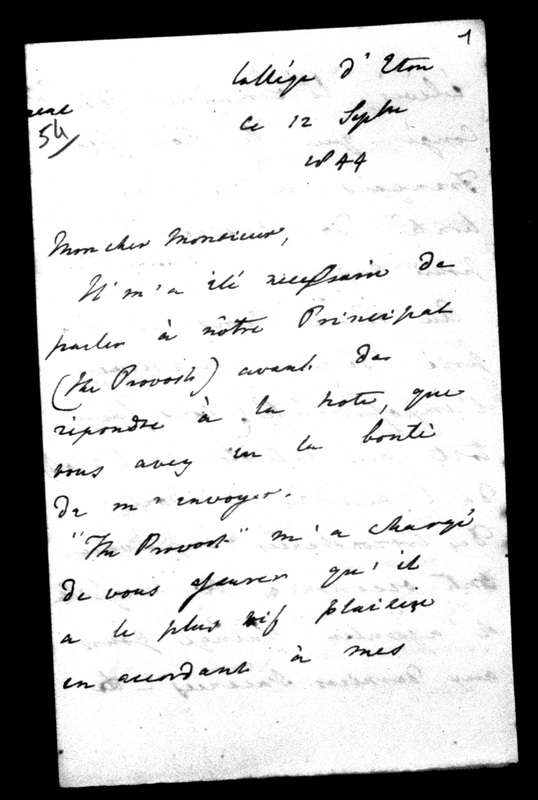 1
Collége d'Eton
ce 12 Septbre
1844
54
Mon cher Monsieur,
Il m'a été necessaire de
parler à nôtre Principal
(The Provost) avant de
répondre à la note, que
vous avez eu la bonté
de m'envoyer.
"The Provost" m'a chargé
de vous assurer qu'il
a le plus vif plaisir
en accordant à mes